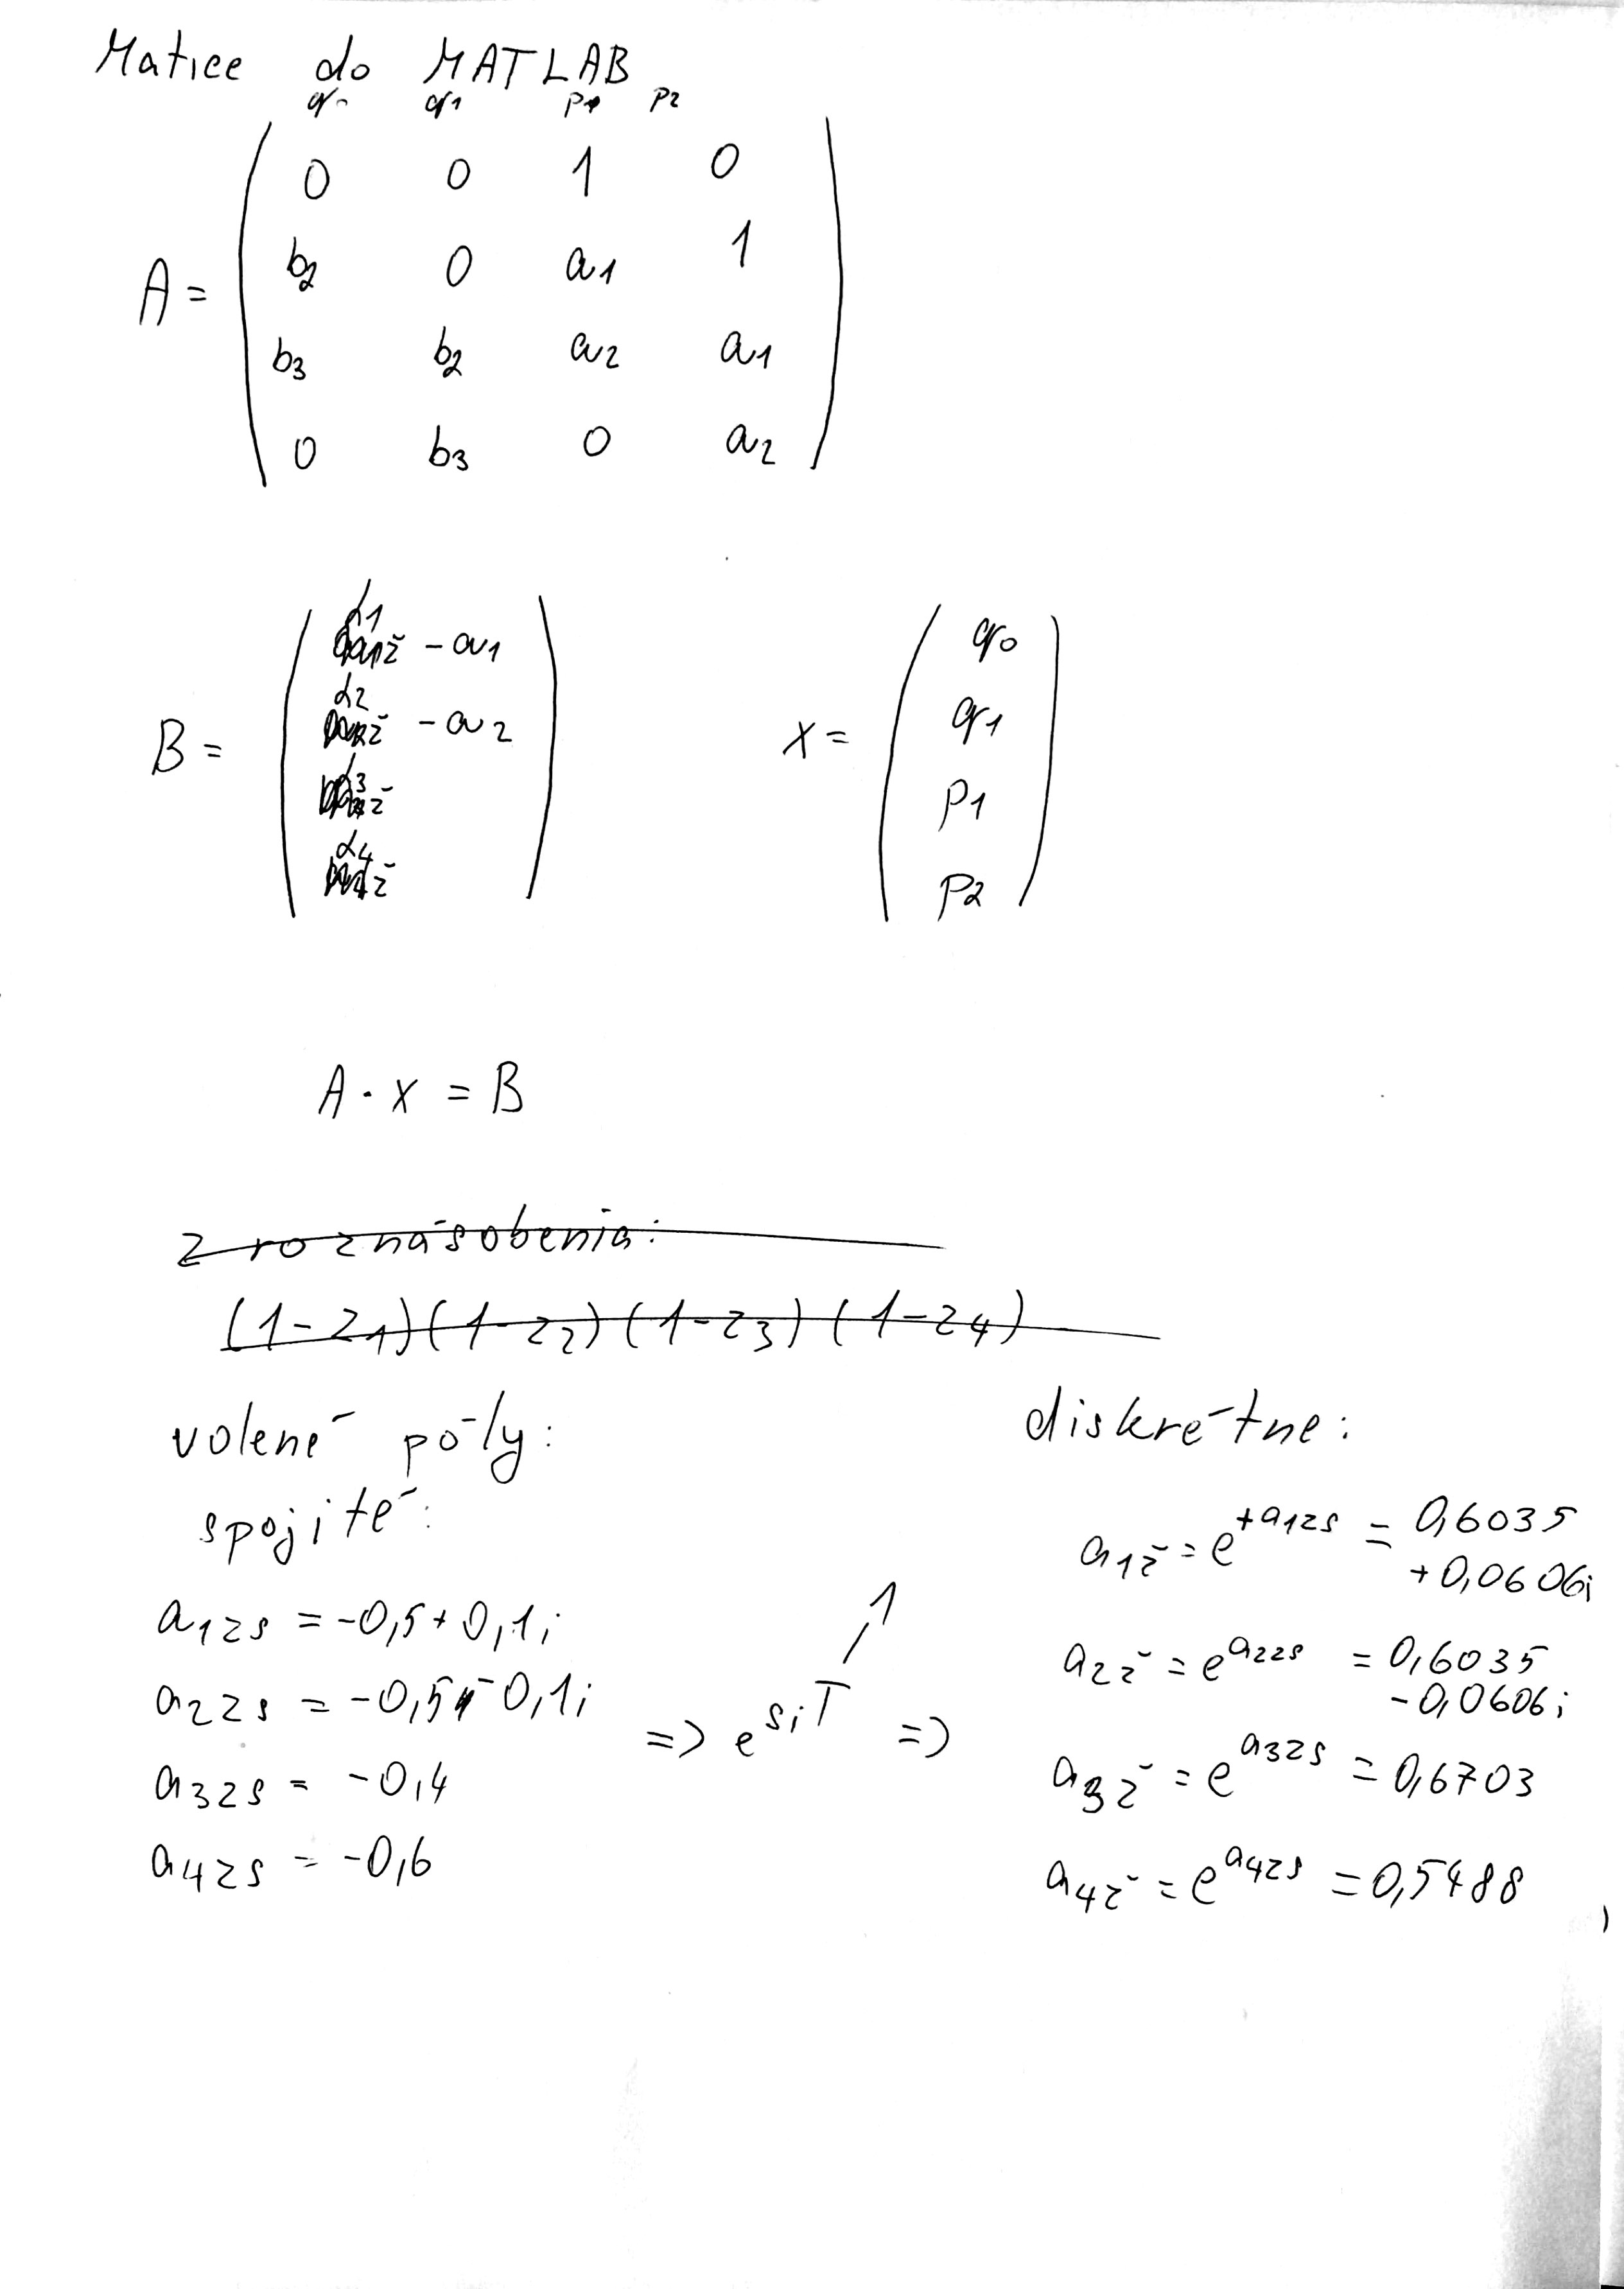 Matice do MATLAB
q0 q1 p1 p2
0 0 1 0
b2 0 a1 1
A =
b3 b2 a2 a1
0 b3 0 a2
α1 - a1
α2 - a2
α3
α4
B =
x =
q0
q1
p1
p2
A · x = B
z roznásobenia:
(1-z1)(1-z2)(1-z3)(1-z4)
volené póly:
spojité:
a1zs = -0,5+0,1i
a2zs = -0,5-0,1i
a3zs = -0,4
a4zs = -0,6
=> e^siT =>
1
diskrétne:
a1ž = e^+a1zs = 0,6035
+0,0606i
a2ž = e^a2zs = 0,6035
-0,0606i
a3ž = e^a3zs = 0,6703
a4ž = e^a4zs = 0,5488